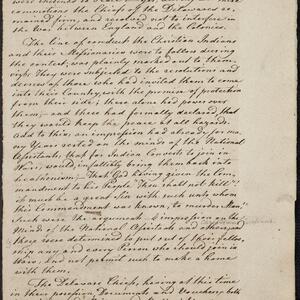 commendations the Chiefs of the Delawares re-
mained firm, and resolved not to interfere in
the War between England and the Colonies.
The line of conduct the Christian Indians
and their Missionaries were to follow during
the contest, was plainly marked out to them,
viz: They were subjected to the resolutions and
decrees of those who had invited them to come
into their Country, with the promise of protection
from their side; these alone had power over
them; and these had formally declared, that
they would keep the peace at all hazards.
Add to this; an impression had already for ma-
ny Years rested on the minds of the National
Assistants, that for Indian Converts to join in
Wars; would infallibly bring them back into
heathenism; That God having given the Com-
mandment to his People Thou shall not kill!
of much a greater Sin with such unto whom
this Commandment was known, to murder Men;
which were the arguments & impressions on the
Minds of the National Assistants and others, and
these were determined to put out of their fellow-
ship any and every Person who should join in
Wars, and not permit such to make a home
with them.
The Delaware Chiefs, having at this time
in their possession Documents and Vouchers, both